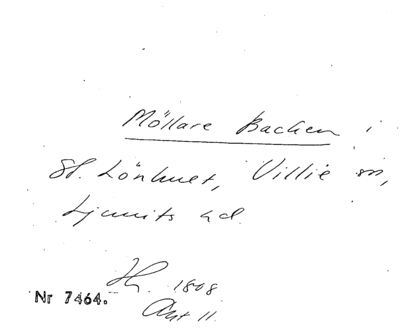 Möllare Backen i
St. Lönhult, Villie sn,
Ljunits hd.
1808
Nr 7464.
Ant 11